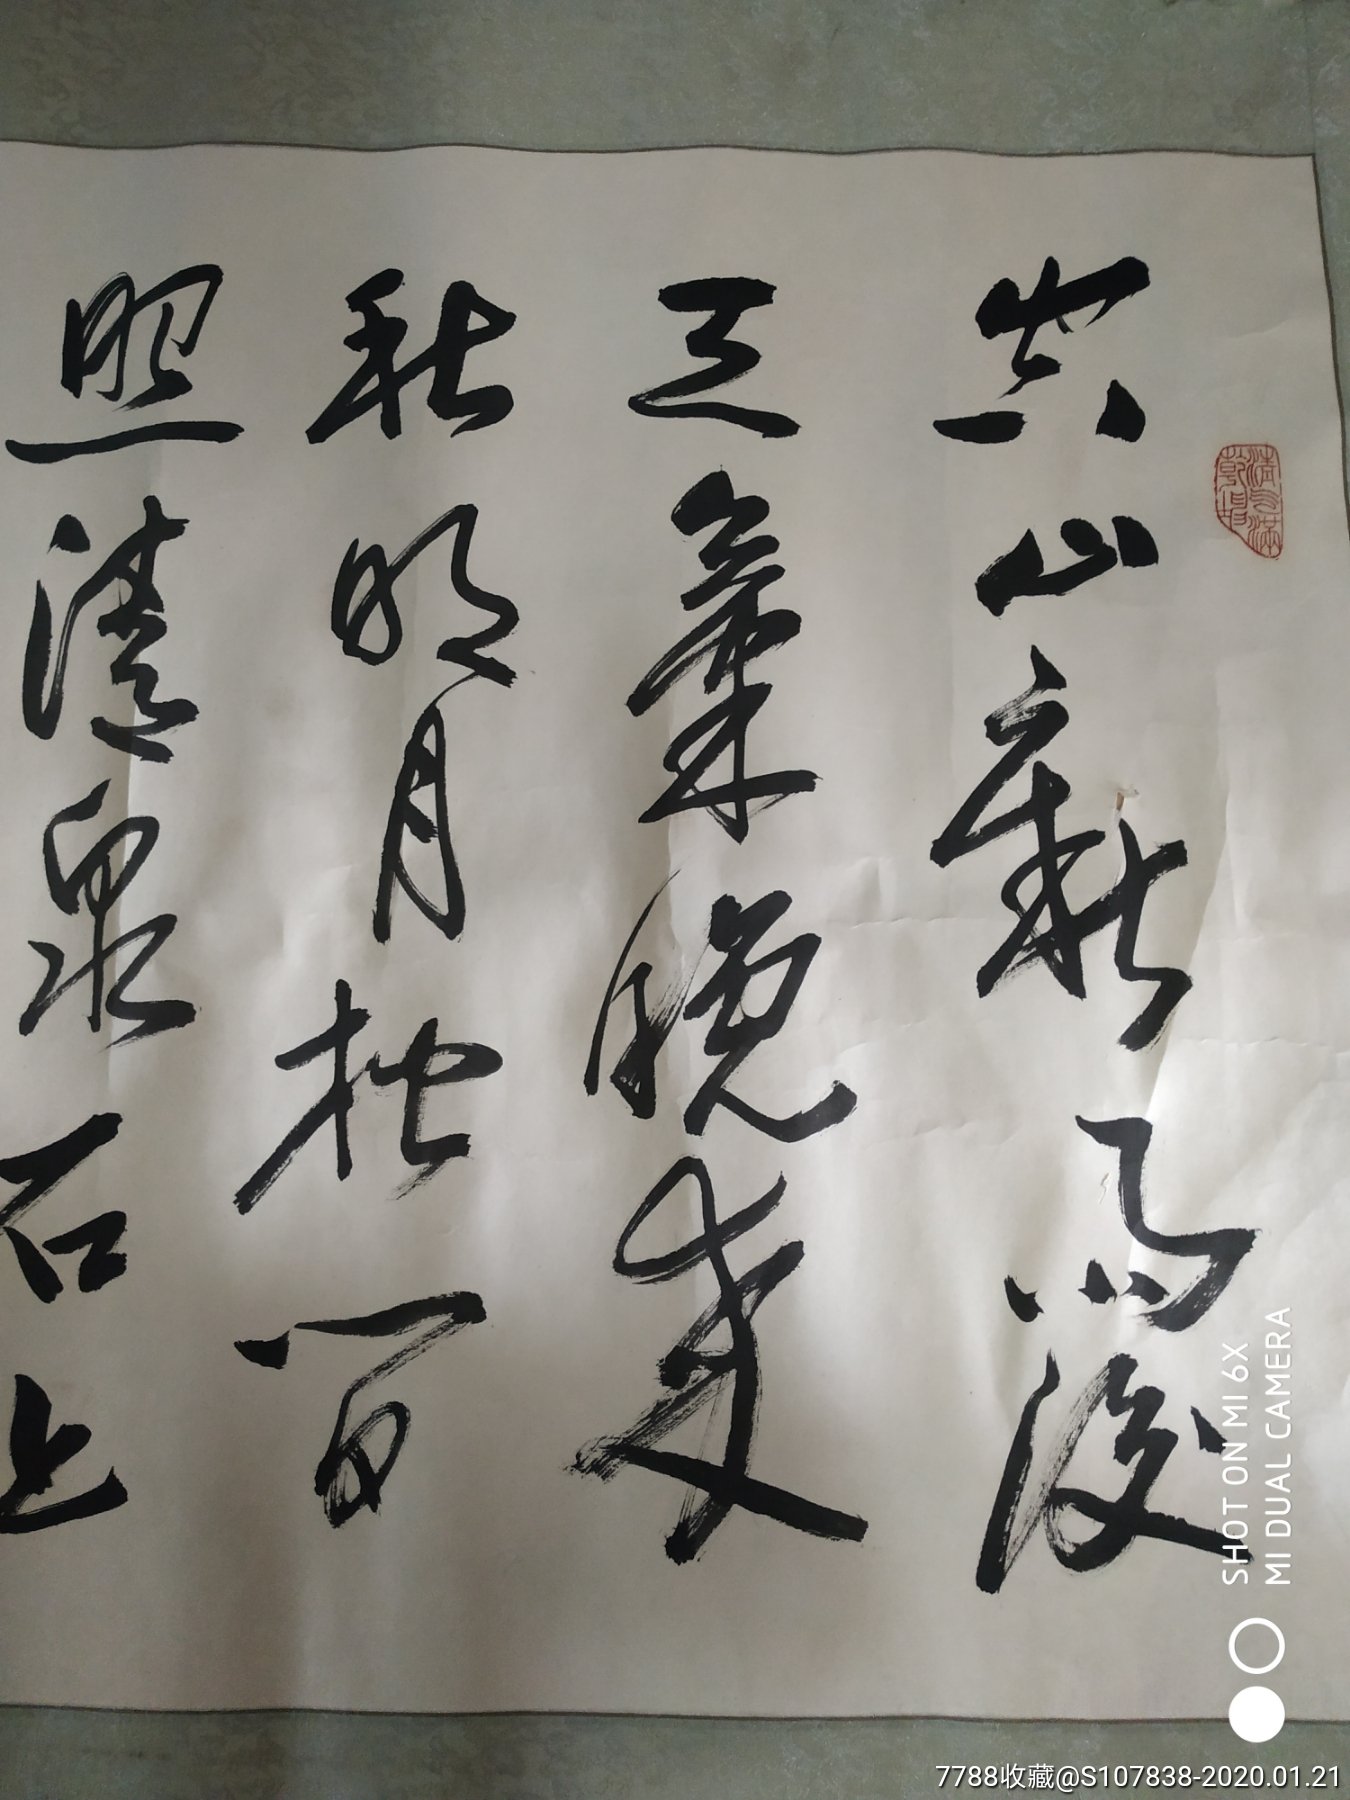 空山新雨後
天氣晚來
秋明月松間
照清泉石上
SHOT ON MI 6X
MI DUAL CAMERA
7788收藏@S107838-2020.01.21